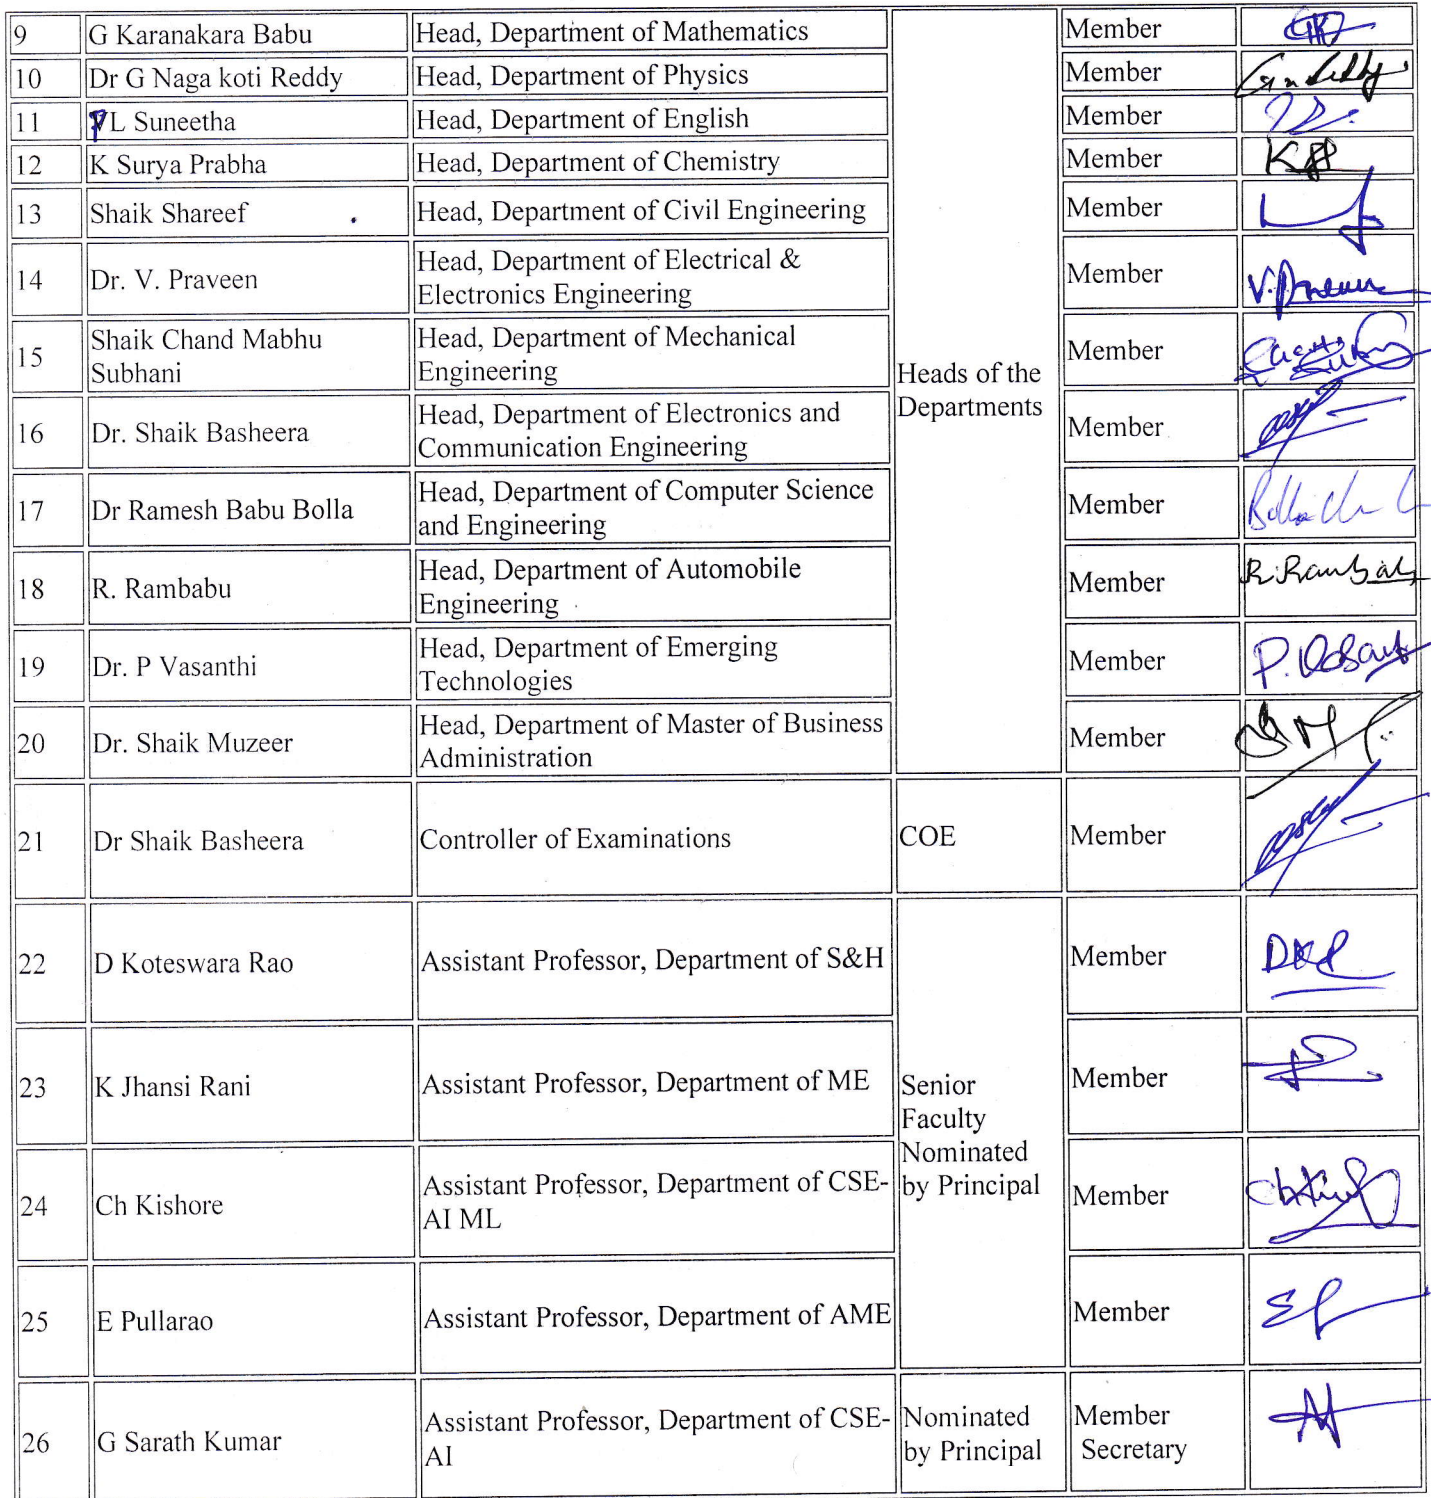 9 G Karanakara Babu Head, Department of Mathematics Member
10 Dr G Naga koti Reddy Head, Department of Physics Member
11 PL Suneetha Head, Department of English Member
12 K Surya Prabha Head, Department of Chemistry Member
13 Shaik Shareef Head, Department of Civil Engineering Member
14 Dr. V. Praveen Head, Department of Electrical &
Electronics Engineering Member V.Praveen
15 Shaik Chand Mabhu
Subhani Head, Department of Mechanical
Engineering Member
Heads of the
Departments
16 Dr. Shaik Basheera Head, Department of Electronics and
Communication Engineering Member
17 Dr Ramesh Babu Bolla Head, Department of Computer Science
and Engineering Member
18 R. Rambabu Head, Department of Automobile
Engineering Member R.Rambabu
19 Dr. P Vasanthi Head, Department of Emerging
Technologies Member
20 Dr. Shaik Muzeer Head, Department of Master of Business
Administration Member
21 Dr Shaik Basheera Controller of Examinations COE Member
22 D Koteswara Rao Assistant Professor, Department of S&H Member
23 K Jhansi Rani Assistant Professor, Department of ME Member
Senior
Faculty
Nominated
by Principal
24 Ch Kishore Assistant Professor, Department of CSE-
AI ML Member
25 E Pullarao Assistant Professor, Department of AME Member
26 G Sarath Kumar Assistant Professor, Department of CSE-
AI Nominated
by Principal Member
Secretary